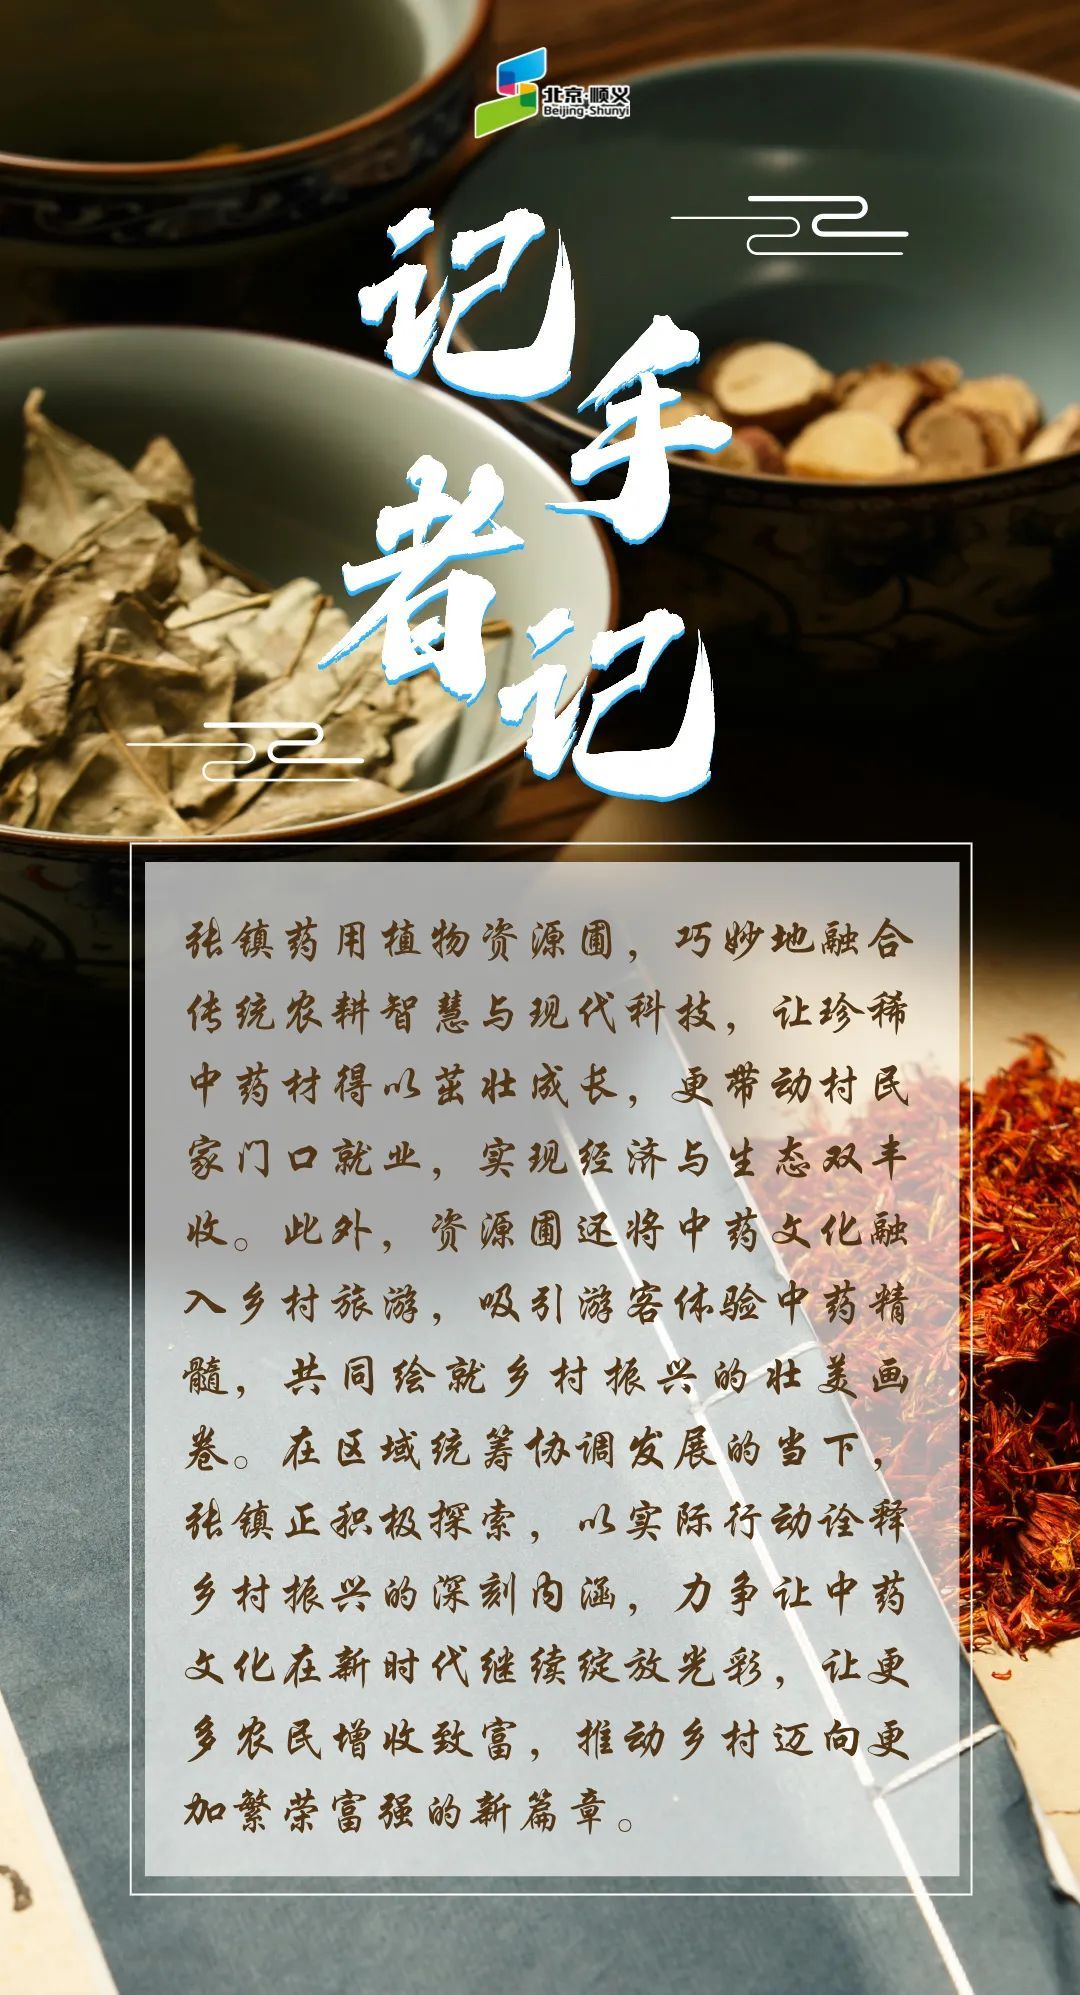 北京·顺义
Beijing·Shunyi
记者手记
张镇药用植物资源圃，巧妙地融合
传统农耕智慧与现代科技，让珍稀
中药材得以茁壮成长，更带动村民
家门口就业，实现经济与生态双丰
收。此外，资源圃还将中药文化融
入乡村旅游，吸引游客体验中药精
髓，共同绘就乡村振兴的壮美画
卷。在区域统筹协调发展的当下，
张镇正积极探索，以实际行动诠释
乡村振兴的深刻内涵，力争让中药
文化在新时代继续绽放光彩，让更
多农民增收致富，推动乡村迈向更
加繁荣富强的新篇章。